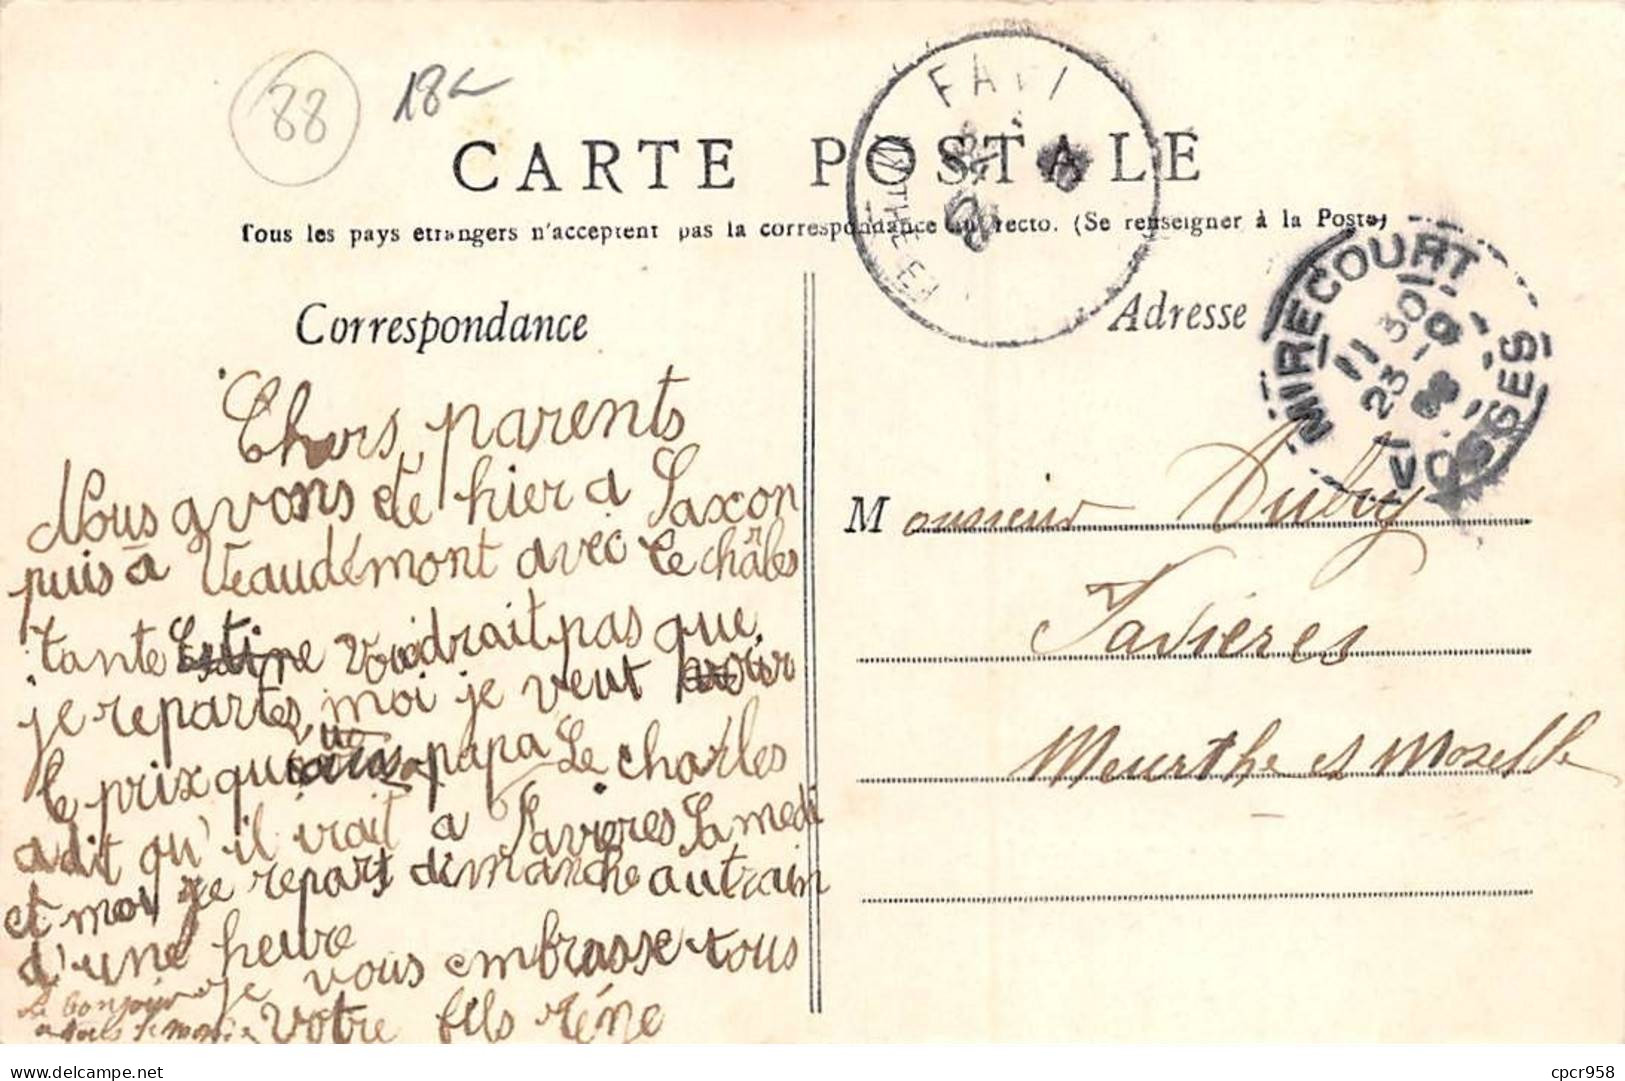 88
18
CARTE POSTALE
Tous les pays étrangers n'acceptent pas la correspondance au recto. (Se renseigner à la Poste)
Correspondance
Adresse
MIRECOURT
11 30
23 - 9
VOSGES
Chers parents
Nous avons été hier a Saxon
puis a Veaudémont avec le châles
tante voudrait pas que
je repartes, moi je veut
le prix qu papa Le charles
a dit qu'il irait a Favieres Samedi
et moi je repars dimanche au train
d'une heure
je vous embrasse tous
Votre fils réne
Le bonjour
a tous
Monsieur Aubry
Favieres
Meurthe et Moselle
cpcr958